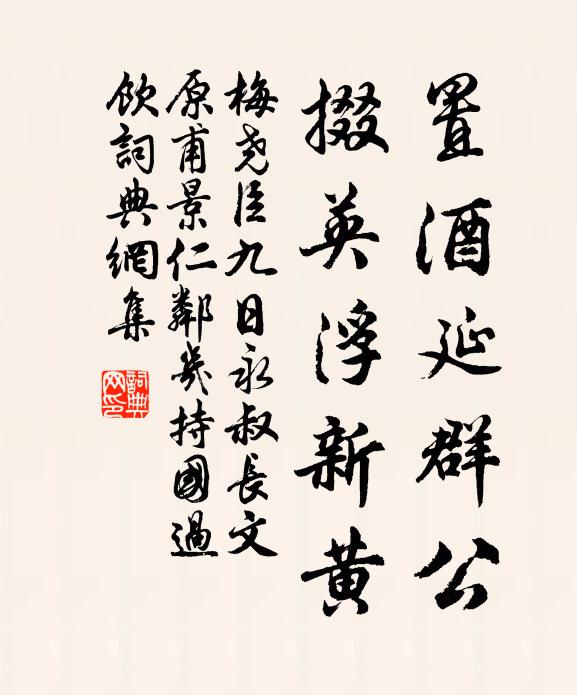 置酒延群公
掇英浮新黄
梅尧臣九日永叔長文
原甫景仁鄰幾持國過
飲詞典網集
詞典网印